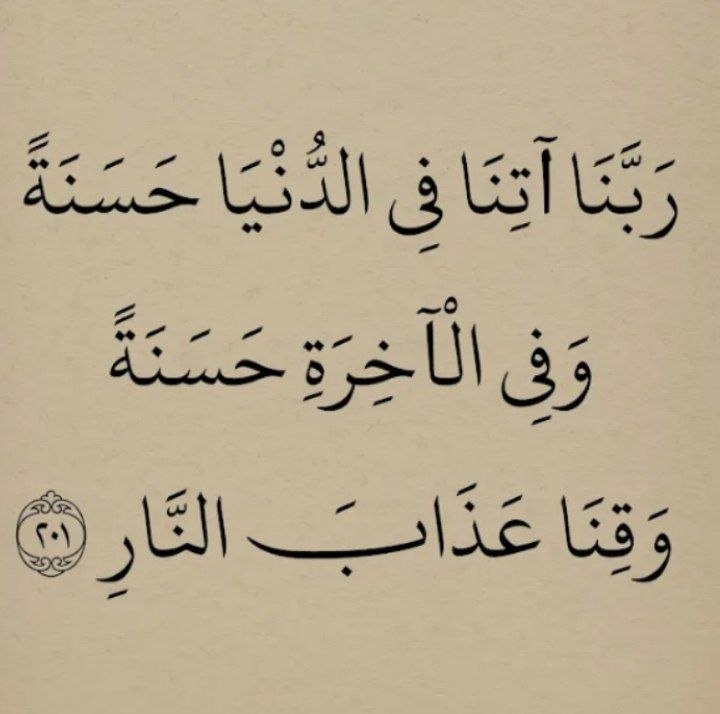 رَبَّنَا آتِنَا فِي الدُّنْيَا حَسَنَةً
وَفِي الْآخِرَةِ حَسَنَةً
وَقِنَا عَذَابَ النَّارِ ٢٠١